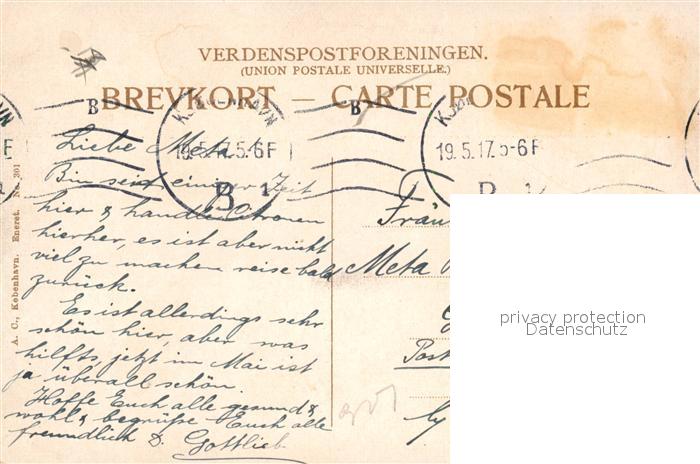 VERDENSPOSTFORENINGEN.
(UNION POSTALE UNIVERSELLE.)
BREVKORT — CARTE POSTALE
B
B
KJØBENHAVN
19.5.17.5-6F
B 1
KJØB
19.5.17.5-6F
B
Liebe Meta!
Bin seit einiger Zeit
hier & handle Citronen
hierher, es ist aber nicht
viel zu machen reise bald
zurück.
Es ist allerdings sehr
schön hier, aber was
hilfts, jetzt im Mai ist
ja überall schön.
Hoffe Euch alle gesund &
wohl & begrüße Euch alle
freundlich D. Gottlieb.
Fräu
Meta
Post
A. C., København. Eneret. No. 301
privacy protection
Datenschutz